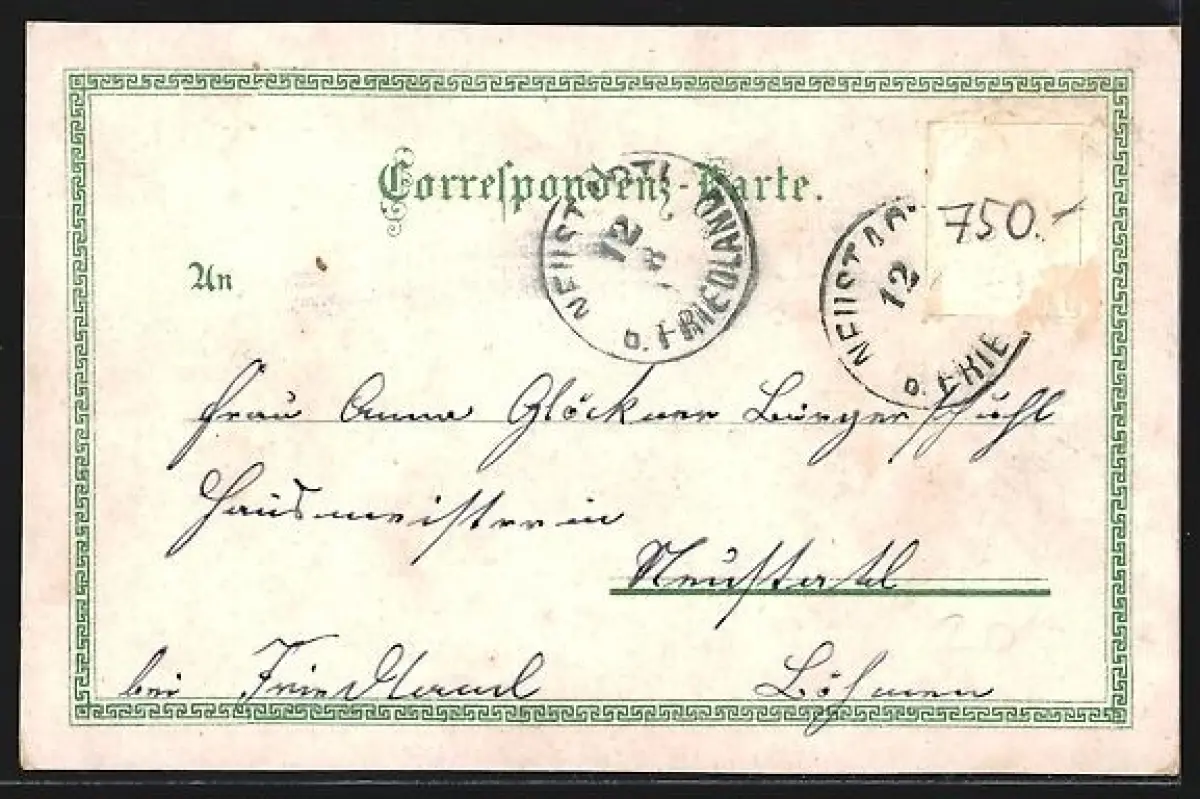 Correspondenz-Karte.
NEUSTADTL
12
8
b. FRIEDLAND
NEUSTAD
12
b. FRIE
750.-
An
Frau Anna Glöckner Bürgerschuhl
Hausmeisterin
Neustadtl
bei Friedland Böhmen
20